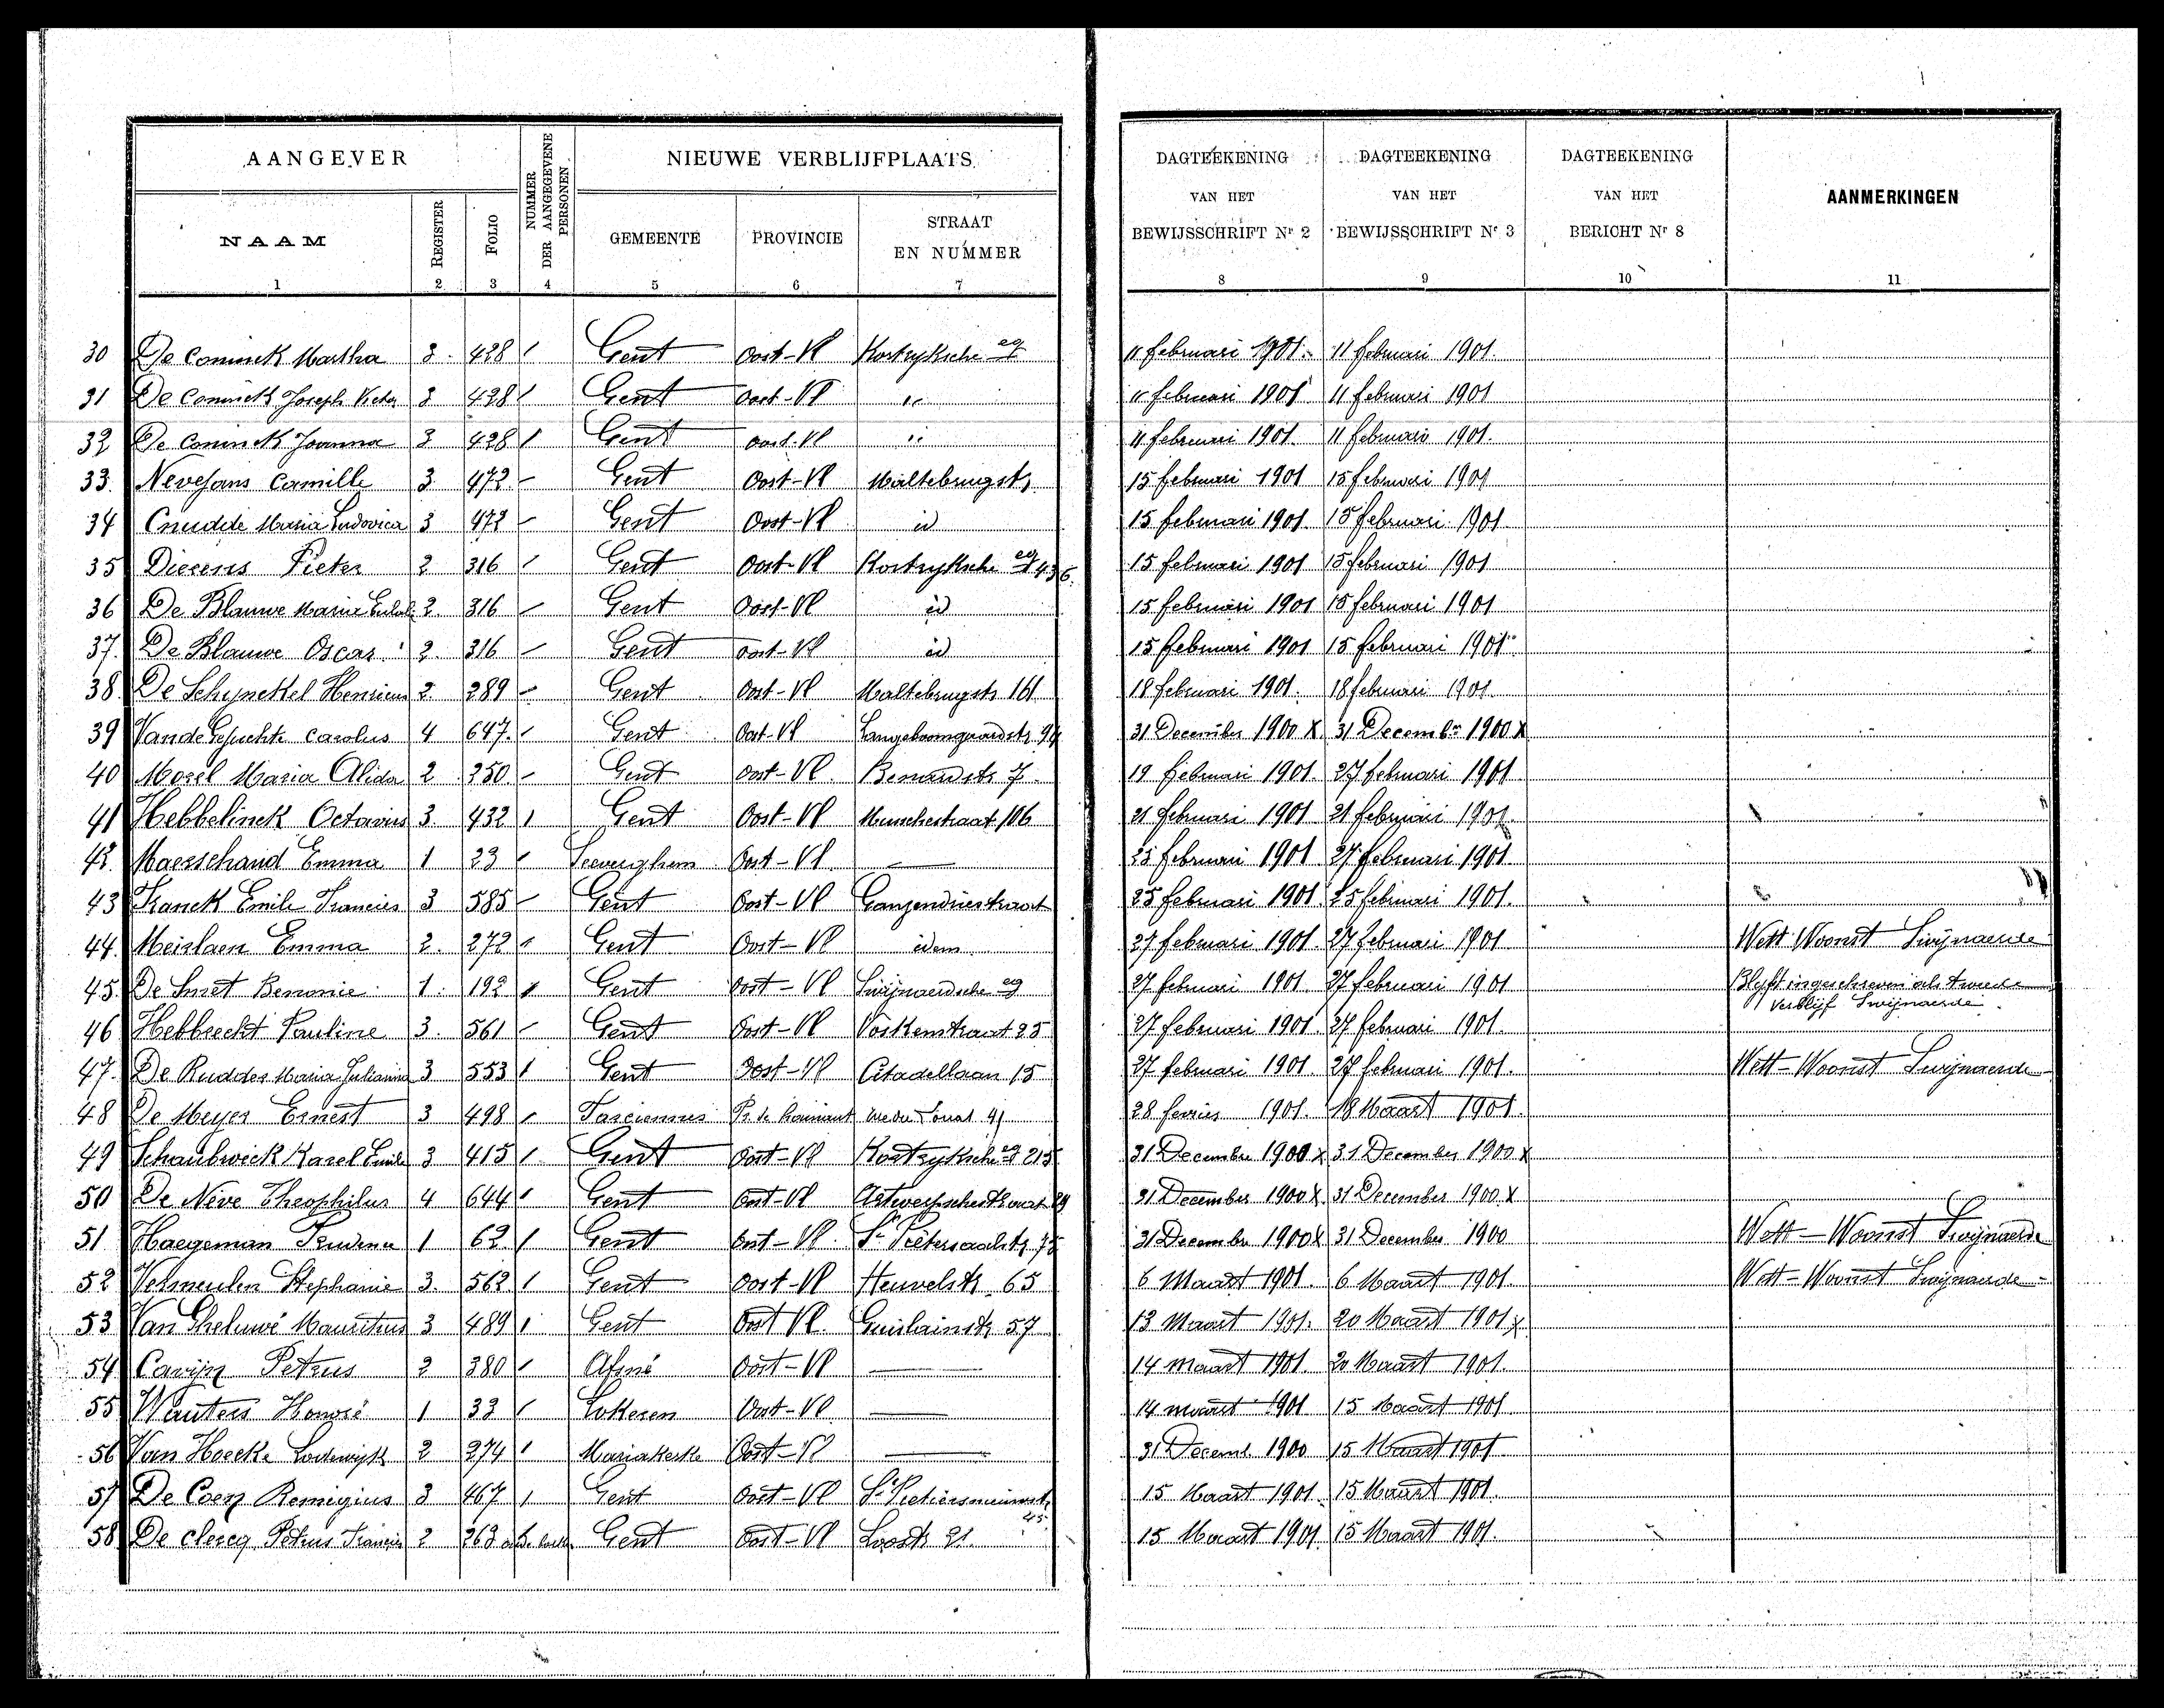 AANGEVER
NUMMER DER AANGEGEVENE PERSONEN
NIEUWE VERBLIJFPLAATS
DAGTEEKENING VAN HET BEWIJSSCHRIFT Nr 2
DAGTEEKENING VAN HET BEWIJSSCHRIFT Nr 3
DAGTEEKENING VAN HET BERICHT Nr 8
AANMERKINGEN
NAAM REGISTER FOLIO GEMEENTE PROVINCIE STRAAT EN NUMMER
1 2 3 4 5 6 7 8 9 10 11
30 De Coninck Martha 3. 428 1 Gent Oost-Vl Kortryksche stg 11 februari 1901. 11 februari 1901.
31 De Coninck Joseph Victor 3 428 1 Gent Oost-Vl " 11 februari 1901 11 februari 1901
32 De Coninck Joanna 3 428 1 Gent Oost-Vl " 11 februari 1901. 11 februari 1901.
33. Nevejans Camille 3 472 - Gent Oost-Vl Maltebrugstr 15 februari 1901 15 februari 1901
34 Cnudde Maria Ludovica 3 472 - Gent Oost-Vl id 15 februari 1901. 15 februari 1901.
35 Pieter 2 316 1 Gent Oost-Vl Kortryksche stg 436. 15 februari 1901 15 februari 1901
36 De Blauwe Marie 2. 316 - Gent Oost-Vl id 15 februari 1901 15 februari 1901
37. De Blauwe Oscar 2. 316 - Gent Oost-Vl id 15 februari 1901 15 februari 1901
38 De Schynckel Henricus 2 289 - Gent Oost-Vl Maltebrugstr 161 18 februari 1901. 18 februari 1901.
39 Carolus 4 647. 1 Gent Oost-Vl Langeboomgaardstr 94 31 December 1900 X 31 Decembr 1900 X
40 Morel Maria Alida 2 250 - Gent Oost-Vl. 7. 19 februari 1901. 27 februari 1901
41 Hebbelinck Octavus 3. 432 1 Gent Oost-Vl Meuschestraat 106 21 februari 1901 21 februari 1901.
42. Maesschand Emma 1 23 1 Seeverghem Oost-Vl — 25 februari 1901 27 februari 1901
43 Franck Emile Francies 3 585 - Gent Oost-Vl Ganzendriestraat 25 februari 1901 25 februari 1901.
44. Meirlaen Emma 2. 272 1 Gent Oost-Vl idem 27 februari 1901 27 februari 1901 Wett Woonst Swijnaerde
45. De Smet Benonie 1. 192 1 Gent Oost-Vl Swijnaerdsche stg 27 februari 1901 27 februari 1901 Blyft ingeschreven als tweede
verblijf Swijnaerde.
46 Hebbrecht Pauline 3. 561 - Gent Oost-Vl Voskenstraat 25 27 februari 1901. 27 februari 1901.
47. De Rudder Maria Julianna 3 553 1 Gent Oost-Vl Citadellaan 15 27 februari 1901 27 februari 1901. Wett-Woonst Swijnaerde
48 De Meyer Ernest 3 498 1 28 fevrier 1901. 18 Maart 1901.
49 Karel Emile 3 415 1 Gent Oost-Vl Kortryksche stg 215 31 Decembre 1900 X 31 December 1900 X
50 De Neve Theophilus 4 644 1 Gent Oost-Vl Antwerpschestraat 29 31 December 1900 X 31 December 1900 X
51 Haegeman 1 62 1 Gent Oost-Vl. St Pietersaalstr 75 31 Decembre 1900 X 31 December 1900 Wett-Woonst Swijnaerde
52 Vermeulen Stephanie 3. 562 1 Gent Oost-Vl Heuvelstr. 65 6 Maart 1901. 6 Maart 1901. Wett-Woonst Swijnaerde
53 Van Gheluwe Mauritius 3 489 1 Gent Oost Vl. Guislainstr 57 13 Maart 1901. 20 Maart 1901 X
54 Petrus 2 380 1 Afsné Oost-Vl — 14 maart 1901. 20 Maart 1901.
55 Wauters Honoré 1 33 1 Lokeren Oost-Vl — 14 maart 1901 15 Maart 1901
56 Van Hoecke Lodewyk 2 274 1 Mariakerke Oost-Vl — 31 Decemb. 1900 15 Maart 1901
57 De Coen Remigius 3 467 1 Gent Oost-Vl 45. 15 Maart 1901. 15 Maart 1901.
58 De clercq Petrus Francies 2 263 Gent Oost-Vl 21. 15 Maart 1901. 15 Maart 1901.